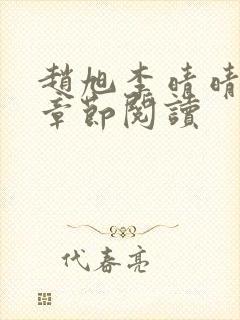 趙旭李晴晴
章節閱讀
代春亮